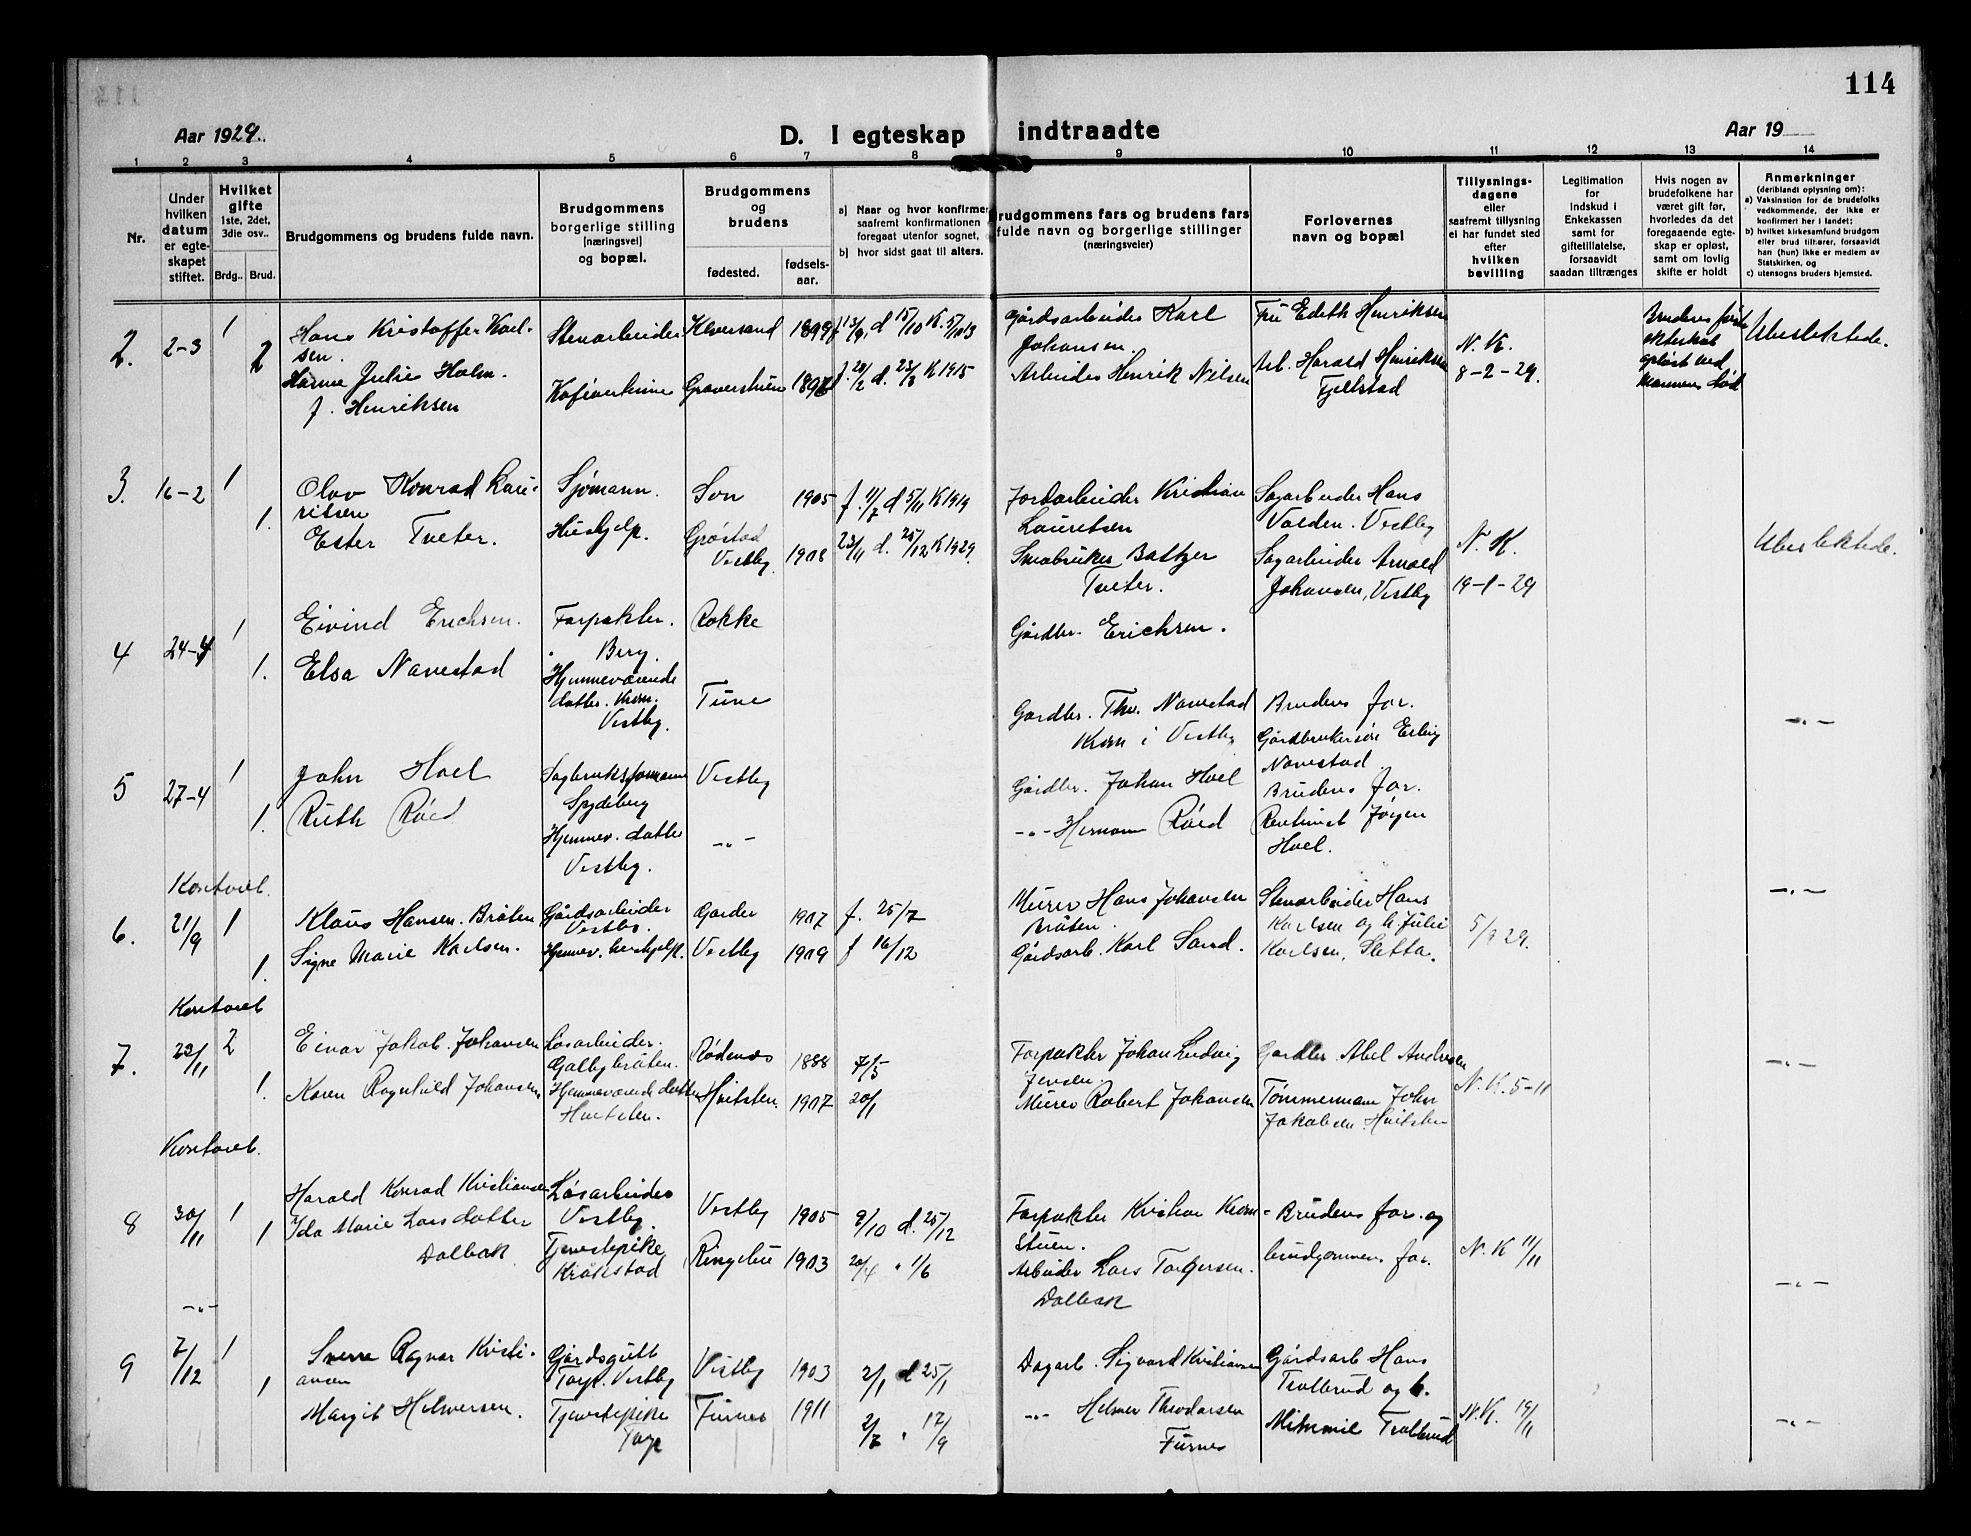 114
Aar 1929.
D. I egteskap indtraadte
Aar 19
1 2 3 4 5 6 7 8 9 10 11 12 13 14
Nr.
Under
hvilken
datum
er egte-
skapet
stiftet.
Hvilket
gifte
1ste, 2det,
3die osv..
Brdg.. Brud.
Brudgommens og brudens fulde navn.
Brudgommens
borgerlige stilling
[næringsvei]
og bopæl.
Brudgommens
og
brudens
fødested.
fødsels-
aar.
a) Naar og hvor konfirmer
saafremt konfirmationen
foregaat utenfor sognet,
b) hvor sidst gaat til alters.
Brudgommens fars og brudens fars
fulde navn og borgerlige stillinger
(næringsveier)
Forlovernes
navn og bopæl
Tillysnings-
dagene
eller
saafremt tillysning
ei har fundet sted
efter
hvilken
bevilling
Legitimation
for
indskud i
Enkekassen
samt for
giftetillatelse,
forsaavidt
saadan tiltrænges
Hvis nogen av
brudefolkene har
været gift før,
hvorledes da det
foregaaende egte-
skap er opløst,
samt om lovlig
skifte er holdt
Anmerkninger
(deriblandt oplysning om):
a) Vaksination for de brudefolks
vedkommende, der ikke er
konfirmert her i landet;
b) hvilket kirkesamfund brudgom
eller brud tilhører, forsaavidt
han (hun) ikke er medlem av
Statskirken, og
c) utensogns bruders hjemsted.
2. 2-3 1 2
Hans Kristoffer Karl-
sen.
Hanna Julie Holm.
f. Henriksen
Stenarbeider
Graverstuen
f 13/9, d 15/10 K. 5/10 13
f. 28/2 d. 23/3 K 1915
Gårdsarbeider Karl
Johansen.
Arbeider Henrik Nilsen
Fru Edith Henriksen
Arb. Harald Henriksen
Fjellstad
N. K.
8-2-29.
Brudens første
ekteskab
opløst ved
mannens død
Ubeslektede.
3. 16-2 1 1.
Olav Konrad Lau-
ritsen
Ester Tveter.
Sjømann.
Hushjelp.
Son 1905
Grøstad
Vestby 1908
f. 11/7 d 5/11 K 1919
23/11 d. 25/12 K 1929.
Jordarbeider Kristian
Lauritsen
Småbruker Baltzer
Tveter.
Sagarbeider Hans
Volden. Vestby
Sagarbeider Arnold
Johansen, Vestby
N. K.
19-1-29
Ubeslektede.
4 24-4 1 1.
Eivind Erichsen.
Elsa Navestad
Forpakter.
Berg.
Hjemmeværende
datter. Krom.
Vestby.
Rakke
Tune
Gårdbr. Erichsen.
Gårdbr. Thv. Navestad
Krom i Vestby
Brudens far.
Gårdbrukersøn Erling
Navestad.
-"-
5 27-4 1 1.
John Hoel
Ruth Røed
Sagbruksformann
Spydeberg
Hjemmev. datter
Vestby.
Vestby
-"-
Gårdbr. Johan Hoel
-"- Herman Røed
Brudens far.
Rentenist Jørgen
Hoel.
-"-
Kontoret.
6. 21/9 1 1.
Klaus Hansen. Bråten
Signe Marie Karlsen.
Gårdsarbeider
Vestby.
Hjemmev. hushjelp.
Garder 1907 f. 25/7
Vestby 1909 f 16/12
Murer Hans Johansen
Bråten.
Gårdsarb. Karl Sand.
Stenarbeider Hans
Karlsen og h. Julie
Karlsen, Sletta.
5/9 29.
Kontoret
7. 23/11 2 1.
Einar Jakob. Johansen
Karen Ragnhild Johansen
Løsarbeider.
Galbybråten.
Hjemmeværende datter
Hvitsten.
Rødenes 1888 7/5
Hvitsten. 1907 20/1
Forpakter Johan Ludvig
Jensen.
Murer Robert Johansen
Gårdbr. Abel Andresen
Tømmermann John
Jakobsen Hvitsten
N. K. 5-11
-"-
Kontoret.
8 30/11 1 1
Harald Konrad Kristiansen
Ida Marie Larsdatter
Dalbak
Løsarbeider
Vestby.
Tjenestepike
Kråkstad
Vestby 1905 9/10 d. 25/12
Ringebu 1903 20/4 " 1/6
Forpakter Kristian Krom-
stuen.
Arbeider Lars Torgersen.
Dalbak
Brudens far. og
brudgommens far.
N. K 11/11
-"-
-"-
9 7/12 1 1
Sverre Ragnar Kristi-
ansen
Margit Helmersen.
Gårdsgutt
Torp. Vestby
Tjenestepike
Torp
Vestby 1903 2/1 d 25/1
Furnes 1911 2/7 " 17/9
Dagarb. Sigvard Kristiansen
-"- Helmer Theodorsen
Furnes
Gårdsarb Hans
Trollerud og h.
Mimmie Trollerud
N. K. 19/11
-"-